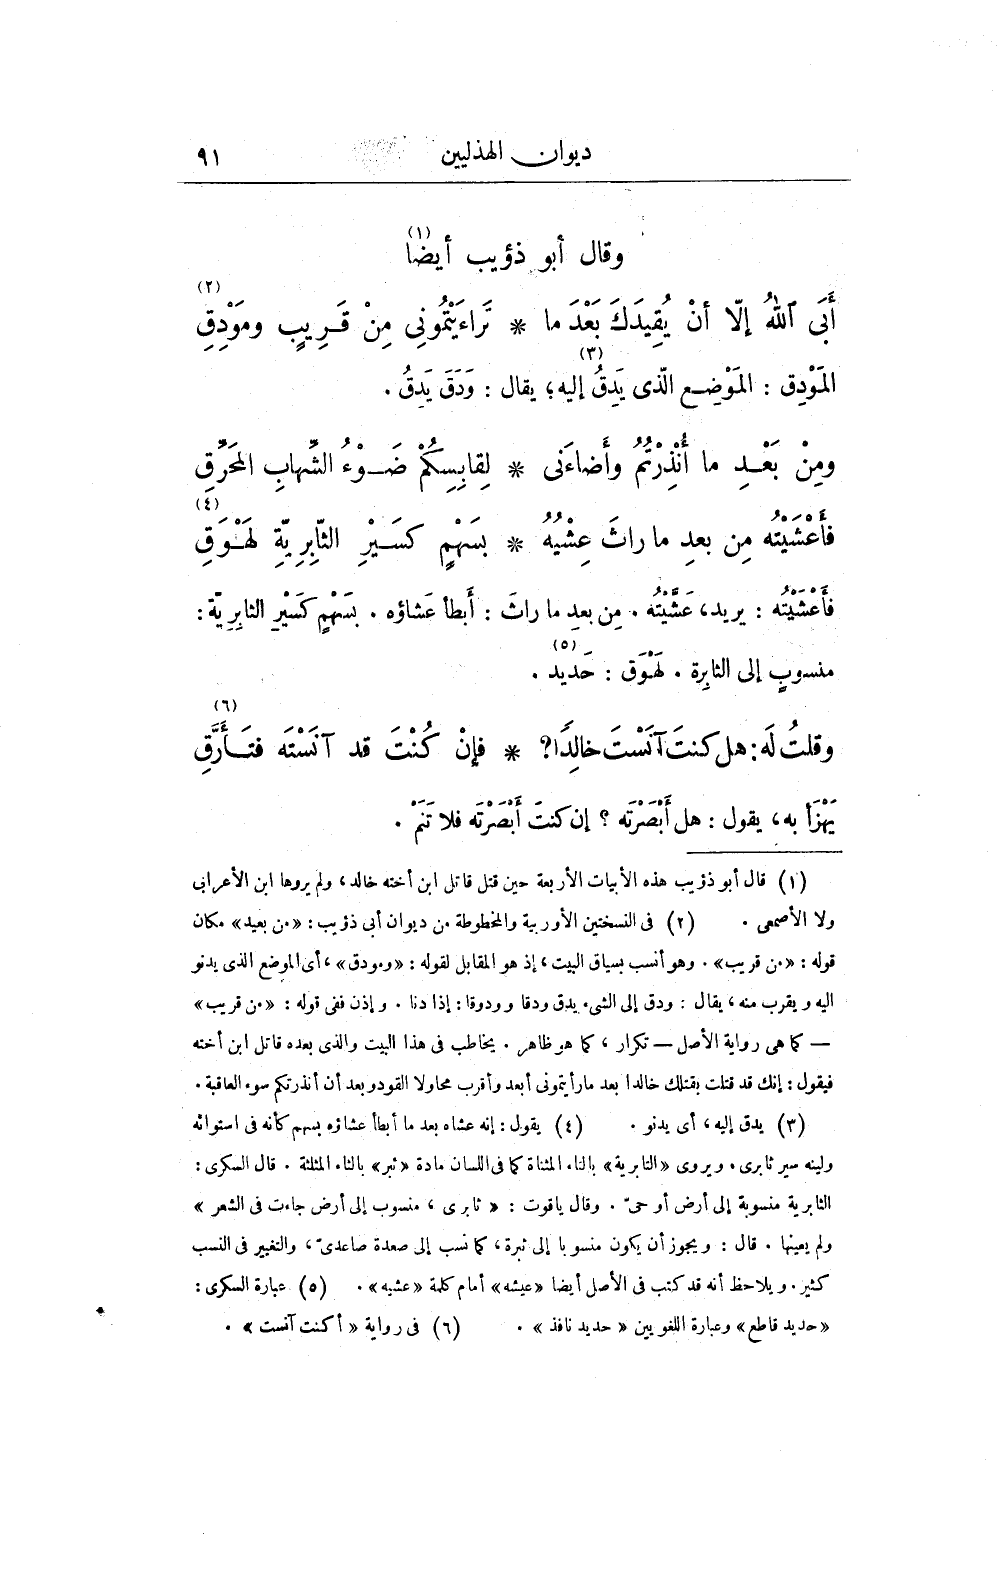 ديوان الهذليين ٩١
وقال أبو ذؤيب أيضا (١)
أَبَى ٱللهُ إلّا أنْ يُقِيدَكَ بَعْدَ ما * تَراءَيْتُمُونى مِنْ قَرِيبٍ ومَوْدِقِ (٢)
المَوْدِق : المَوْضِع الّذى يَدِقُ (٣) إليه؛ يقال : وَدَقَ يَدِقُ .
ومِنْ بَعْدِ ما أُنْذِرْتُمُ وأَضاءَنى * لِقابِسِكُمْ ضَوْءُ الشِّهابِ المُحَرِّقِ
فأَعْشَيْتُه مِن بعدِ ما راثَ عِشْيُهُ * بسَهْمٍ كسَيْرِ الثّابِرِيّةِ لَهْوَقِ (٤)
فأَعْشَيْتُه : يريد، عَشَّيْتُه . مِن بعدِ ما راثَ : أبطأَ عَشاؤه . بسَهْمٍ كسَيْرِ الثابِرِيّة :
منسوبٍ إلى الثابِرة . لَهْوَق : حَديد (٥) .
وقلتُ لَه: هل كنتَ آنَسْتَ خالِدًا؟ * فإنْ كُنْتَ قد آنَسْتَه فتَأَرَّقِ (٦)
يَهْزَأ به، يقول : هل أَبْصَرْتَه ؟ إن كنتَ أَبْصَرْتَه فلا تَنَمْ .
(١) قال أبو ذؤيب هذه الأبيات الأربعة حين قتل قاتل ابن أخته خالد، ولم يروها ابن الأعرابى
ولا الأصمعى . (٢) فى النسختين الأوربية والمخطوطة من ديوان أبى ذؤيب : «من بعيد» مكان
قوله : «من قريب» . وهو أنسب بسياق البيت، إذ هو المقابل لقوله : «ومودق»، أى الموضع الذى يدنو
اليه ويقرب منه، يقال : ودق إلى الشىء يدق ودقا وودوقا : إذا دنا . وإذن ففى قوله : «من قريب»
— كما هى رواية الأصل — تكرار، كما هو ظاهر . يخاطب فى هذا البيت والذى بعده قاتل ابن أخته
فيقول : إنك قد قتلت بقتلك خالدا بعد ما رأيتمونى أبعد وأقرب محاولا القود وبعد أن أنذرتكم سوء العاقبة .
(٣) يدق إليه، أى يدنو . (٤) يقول : إنه عشاه بعد ما أبطأ عشاؤه بسهم كأنه فى استوائه
ولينه سير ثابرى . ويروى «التابرية» بالتاء المثناة كما فى اللسان مادة «ثبر» بالثاء المثلثة . قال السكرى :
الثابرية منسوبة إلى أرض أو حىّ . وقال ياقوت : « ثابرى ، منسوب إلى أرض جاءت فى الشعر »
ولم يعينها . قال : ويجوز أن يكون منسوبا إلى ثبرة، كما نسب إلى صعدة صاعدىّ، والتغيير فى النسب
كثير . ويلاحظ أنه قد كتب فى الأصل أيضا «عيشه» أمام كلمة «عشيه» . (٥) عبارة السكرى :
«حديد قاطع» وعبارة اللغويين « حديد نافذ » . (٦) فى رواية « أكنت آنست » .